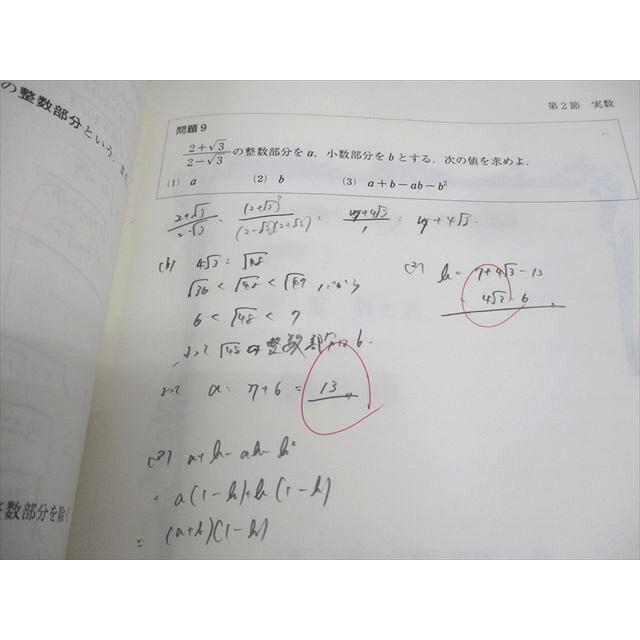 の整数部分という．また
第2節 実数
問題9
(2+√3)/(2−√3) の整数部分を a，小数部分を b とする．次の値を求めよ．
(1) a (2) b (3) a+b−ab−b²
(2+√3)/(2−√3) = (2+√3)²/((2−√3)(2+√3)) = (7+4√3)/1 = 7+4√3.
(1) 4√3 = √48
√36 < √48 < √49 だから
6 < √48 < 7
よって √48 の整数部分は 6.
よって a = 7+6 = 13
(2) b = 7+4√3−13
= 4√3−6
(3) a+b−ab−b²
= a(1−b)+b(1−b)
= (a+b)(1−b)
整数部分を除く